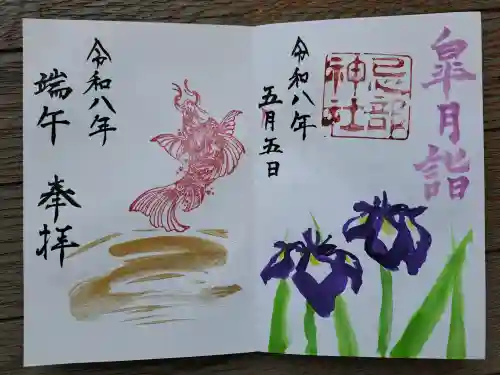 皐月詣
忌部
神社
令和八年
五月五日
令和八年
端午
奉拝